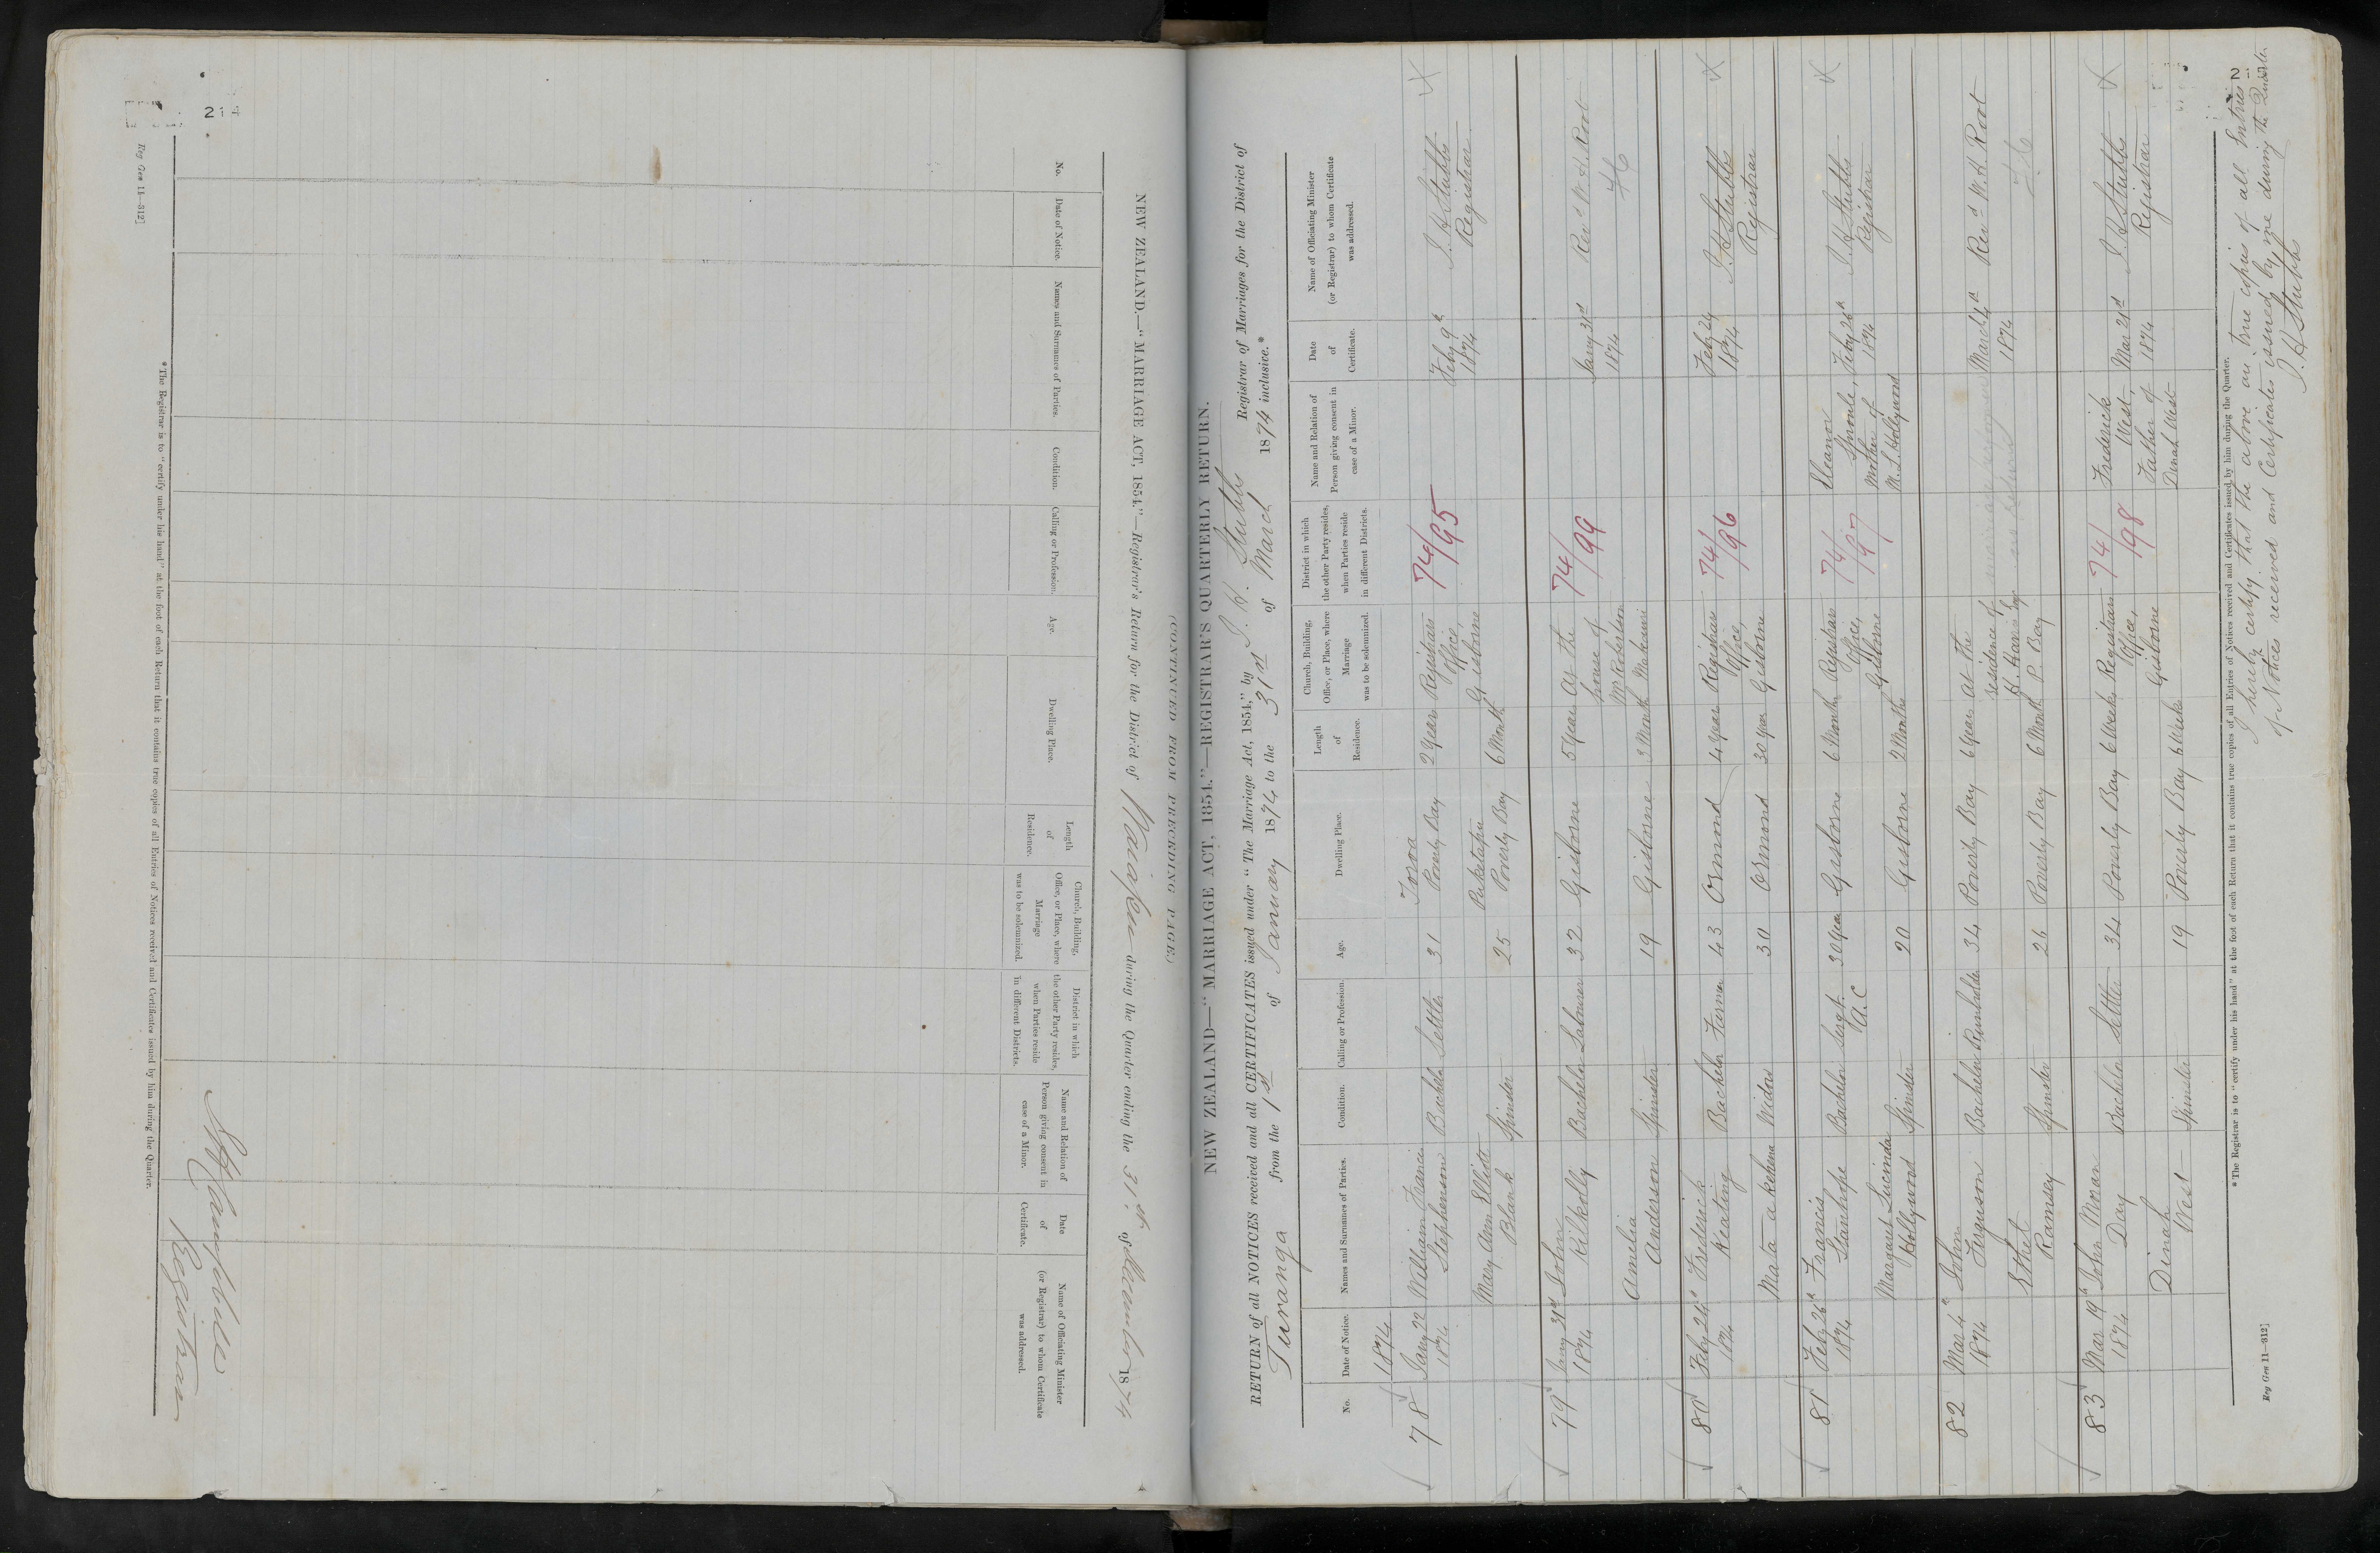 214
Reg Gen 11—312]
NEW ZEALAND.—"MARRIAGE ACT, 1854."—Registrar's Return for the District of Waiapu during the Quarter ending the 31st of December 1874
No.
Date of Notice.
Names and Surnames of Parties.
Condition.
Calling or Profession.
Age.
Dwelling Place.
Length of Residence.
Church, Building, Office, or Place, where Marriage was to be solemnized.
District in which the other Party resides, when Parties reside in different Districts.
Name and Relation of Person giving consent in case of a Minor.
Date of Certificate.
Name of Officiating Minister (or Registrar) to whom Certificate was addressed.
Registrar
*The Registrar is to "certify under his hand" at the foot of each Return that it contains true copies of all Entries of Notices received and Certificates issued by him during the Quarter.
(CONTINUED FROM PRECEDING PAGE.)
NEW ZEALAND—"MARRIAGE ACT, 1854."—REGISTRAR'S QUARTERLY RETURN.
RETURN of all NOTICES received and all CERTIFICATES issued under "The Marriage Act, 1854," by J. H. Stubbs Registrar of Marriages for the District of
Turanga from the 1st of January 1874 to the 31st of March 1874 inclusive.*
No.
Date of Notice.
Names and Surnames of Parties.
Condition.
Calling or Profession.
Age.
Dwelling Place.
Length of Residence.
Church, Building, Office, or Place, where Marriage was to be solemnized.
District in which the other Party resides, when Parties reside in different Districts.
Name and Relation of Person giving consent in case of a Minor.
Date of Certificate.
Name of Officiating Minister (or Registrar) to whom Certificate was addressed.
1874
78 Jany 22 William Francis Bachelor Settler 31 Poverty Bay 2 Year Registrars 74/95 Feby 9th J. H. Stubbs
1874 Stephenson Office, 1874 Registrar
Mary Ann Elliott Spinster 25 Poverty Bay 6 Month Gisborne
Blank
79 Jany 31st John Bachelor Labourer 32 Gisborne 5 Year At the 74/99 Jany 31st Revd W. H. Root
1874 Kilkolly house of 1874 76
Amelia Spinster 19 Gisborne 3 Month Mr Robertson
Anderson
80 Feby 24th Frederick Bachelor Farmer 43 Ormond 4 year Registrars 74/96 Feby 24 J. H. Stubbs
1874 Keating Office, 1874 Registrar
Mata a kahura Widow 30 Ormond 30 year Gisborne
81 Feby 26th Francis Bachelor Sergt. A.C 30 Year Gisborne 6 Month Registrars 74/97 Eleanor Sproule, Feby 26th J. H. Stubbs
1874 Stanhope Office, Mother of 1874 Registrar
Margaret Lucinda Spinster 20 Gisborne 2 Month Gisborne M. L. Hollywood
Hollywood
82 Mar 4th John Bachelor Runholder 34 Poverty Bay 6 Year At the March 4th Revd W. H. Root
1874 Ferguson residence of 1874 76
Ethel Spinster 26 Poverty Bay 6 Month P. Bay
Ramsey
83 Mar 19th John Moran Bachelor Settler 34 Poverty Bay 6 Weeks Registrars 74/98 Frederick Mar 21st J. H. Stubbs
1874 Day Office, West, 1874 Registrar
Dinah Spinster 19 Poverty Bay 6 Weeks Gisborne Father of
West Dinah West
*The Registrar is to "certify under his hand" at the foot of each Return that it contains true copies of all Entries of Notices received and Certificates issued by him during the Quarter.
I hereby certify that the above are true copies of all Entries
of Notices received and Certificates issued by me during the Quarter.
J. H. Stubbs
Reg Gen 11—312]